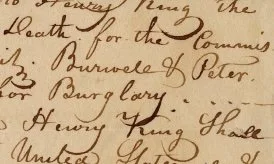 to Henry King the
Death. for the Commis
Burwell & Peter.
Burglary
Henry King Shall
United States